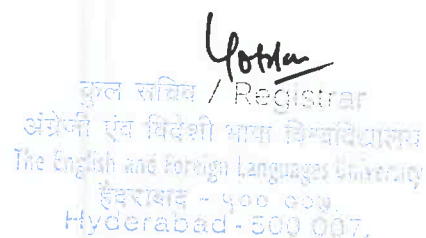 कुल सचिव / Registrar
अंग्रेजी एंव विदेशी भाषा विश्वविद्यालय
The English and Foreign Languages University
हैदराबाद - ५०० ००७.
Hyderabad - 500 007.